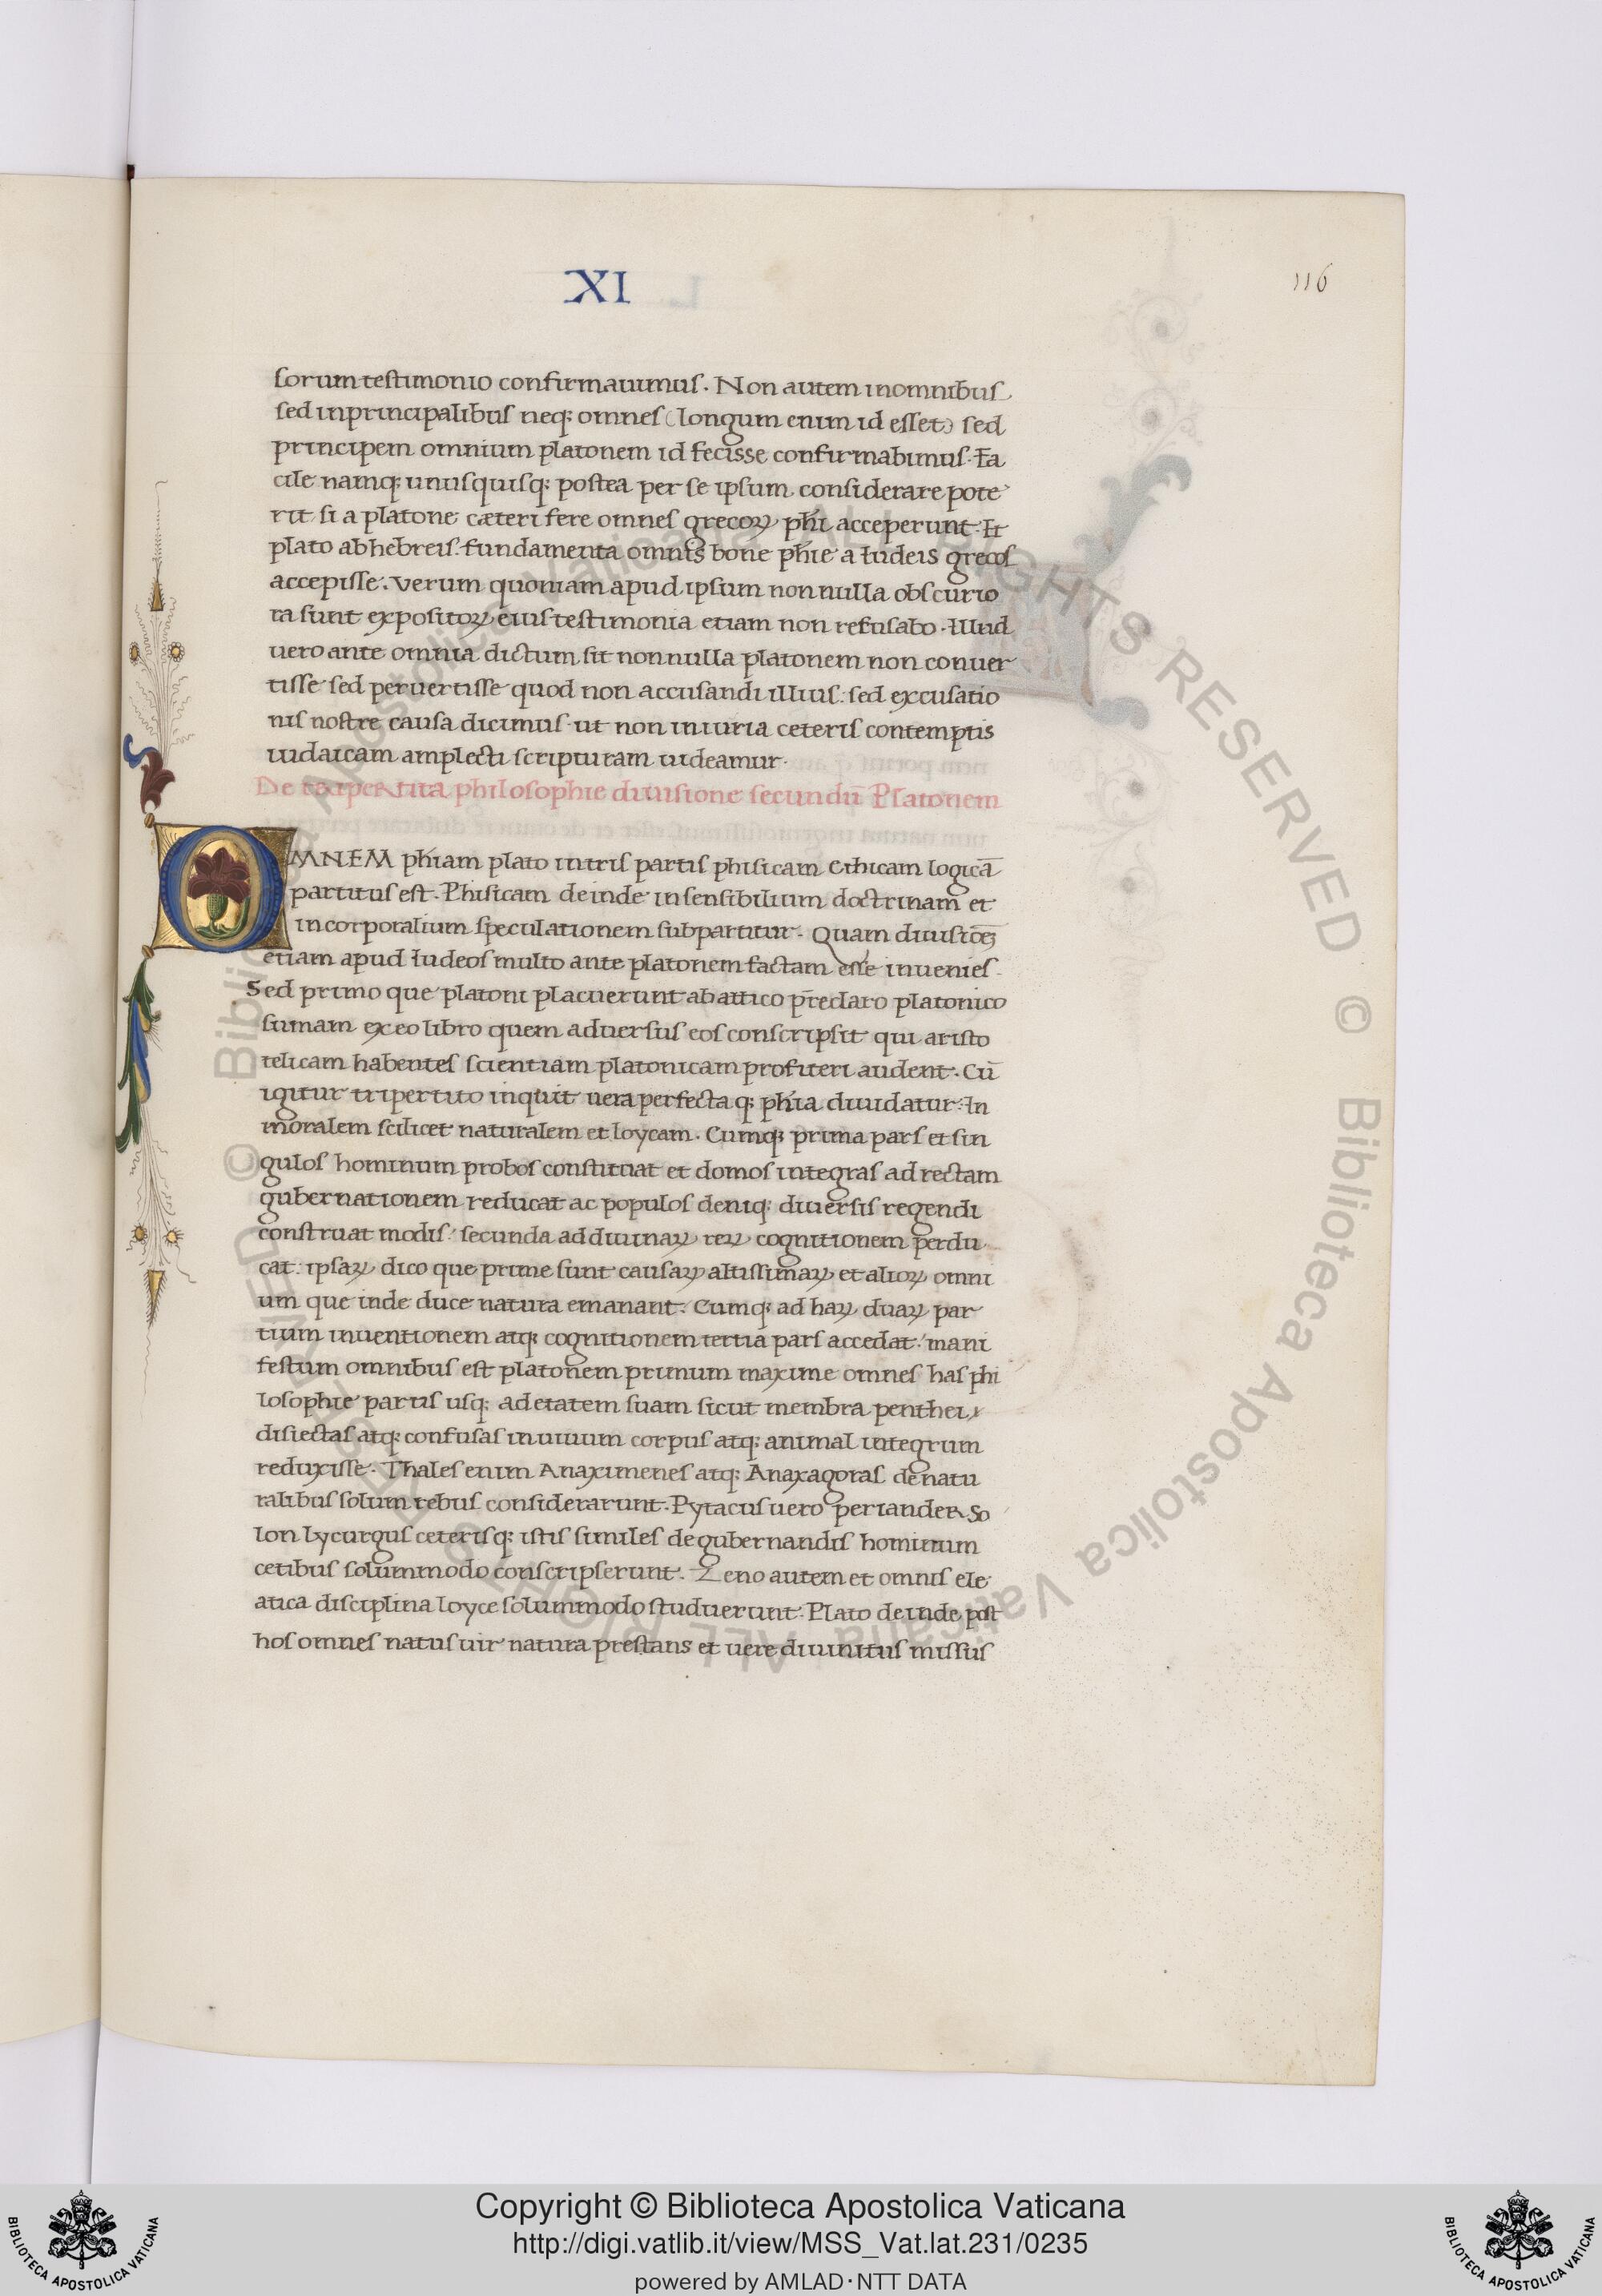 XI
116
sorum testimonio confirmauimus. Non autem in omnibus
sed in principalibus neq; omnes (longum enim id esset) sed
principem omnium platonem id fecisse confirmabimus. Fa
cile namq; unusquisq; postea per se ipsum considerare pote
rit si a platone cæteri fere omnes grecoꝝ phi acceperunt. Et
plato ab hebreis. fundamenta omnis bone phie a Iudeis grecos
accepisse. Verum quoniam apud ipsum non nulla obscurio
ra sunt expositoꝝ eius testimonia etiam non refusabo. Illud
uero ante omnia dictum sit non nulla platonem non conuer
tisse sed peruertisse quod non accusandi illius: sed excusatio
nis nostre causa dicimus ut non iniuria ceteris contemptis
iudaicam amplecti scripturam uideamur.
De tripertita philosophie diuisione secundū Platonem
OMNEM phiam plato in tris partis phisicam ethicam logicā
partitus est. Phisicam deinde in sensibilium doctrinam et
incorporalium speculationem subpartitur. Quam diuisiōeʒ
etiam apud Iudeos multo ante platonem factam esse inuenies.
Sed primo que platoni placuerunt ab attico p̄eclaro platonico
sumam ex eo libro quem aduersus eos conscripsit qui aristo
telicam habentes scientiam platonicam profiteri audent. Cū
igitur tripertito inquit uera perfectaq; phia diuidatur: In
moralem scilicet naturalem et loycam. Cumq; prima pars et sin
gulos hominum probos constituat et domos integras ad rectam
gubernationem reducat ac populos deniq; diuersis regendi
construat modis: secunda ad diuinaꝝ reꝝ cognitionem perdu
cat: ipsaꝝ dico que prime sunt causaꝝ altissimaꝝ et alioꝝ omni
um que inde duce natura emanant. Cumq; ad haꝝ duaꝝ par
tium inuentionem atq; cognitionem tertia pars accedat: mani
festum omnibus est platonem primum maxime omnes has phi
losophie partis usq; ad etatem suam sicut membra penthei
disiectas atq; confusas in uiuum corpus atq; animal integrum
reduxisse. Thales enim Anaximenes atq; Anaxagoras de natu
ralibus solum rebus considerarunt. Pytacus uero periander So
lon lycurgus ceterisq; istis similes de gubernandis hominum
cetibus solummodo conscripserunt. Zeno autem et omnis ele
atica disciplina loyce solummodo studuerunt. Plato deinde post
hos omnes natus uir natura prestans et uere diuinitus missus
Copyright © Biblioteca Apostolica Vaticana
http://digi.vatlib.it/view/MSS_Vat.lat.231/0235
powered by AMLAD·NTT DATA
BIBLIOTECA APOSTOLICA VATICANA
BIBLIOTECA APOSTOLICA VATICANA
© Biblioteca Apostolica Vaticana ALL RIGHTS RESERVED © Biblioteca Apostolica Vaticana ALL RIGHTS RESERVED